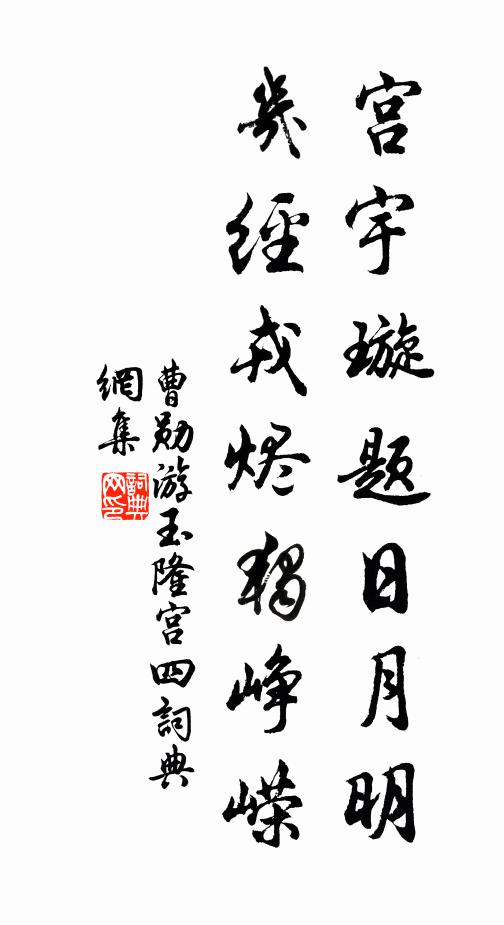 宫宇璇题日月明
几经戎烬独峥嵘
曹勋游玉隆宫四詞典
網集
詞典
网印